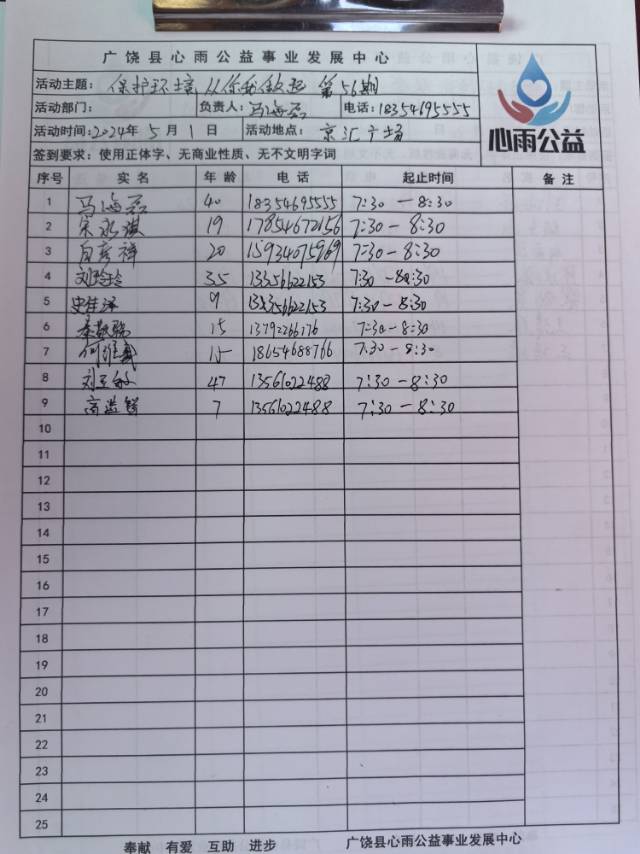 广饶县心雨公益事业发展中心
活动主题：保护环境，从你我做起 第56期
活动部门： 负责人：马海磊 电话：18354695555
活动时间：2024年5月1日 活动地点：京汇广场
签到要求：使用正体字、无商业性质、无不文明字词
心雨公益
序号 实名 年龄 电话 起止时间 备注
1 马海磊 40 18354695555 7:30—8:30
2 宋永淇 19 17854672156 7:30—8:30
3 20 15934075969 7:30—8:30
4 刘玲玲 35 13356622153 7:30—8:30
5 史佳泽 9 13356622153 7:30—8:30
6 15 13792266176 7:30—8:30
7 15 18654688766 7:30—8:30
8 刘卫敏 47 13561022488 7:30—8:30
9 7 13561022488 7:30—8:30
10
11
12
13
14
15
16
17
18
19
20
21
22
23
24
25
奉献 有爱 互助 进步 广饶县心雨公益事业发展中心